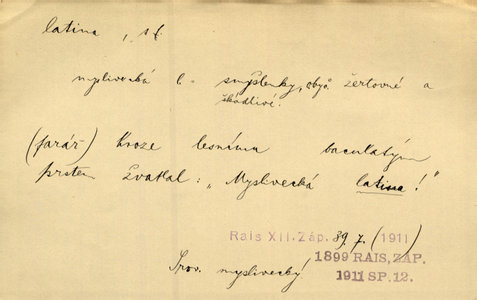 latina, s. f.
myslivecká l. = smyšlenky, obyč. žertovné a
škodlivé.
(farář) hroze lesnímu baculatým
prstem žvatlal: „Myslivecká latina!"
Rais XII. Záp. 39, 7. (1911)
1899 RAIS, ZÁP.
1911 SP. 12.
Srov. myslivecký